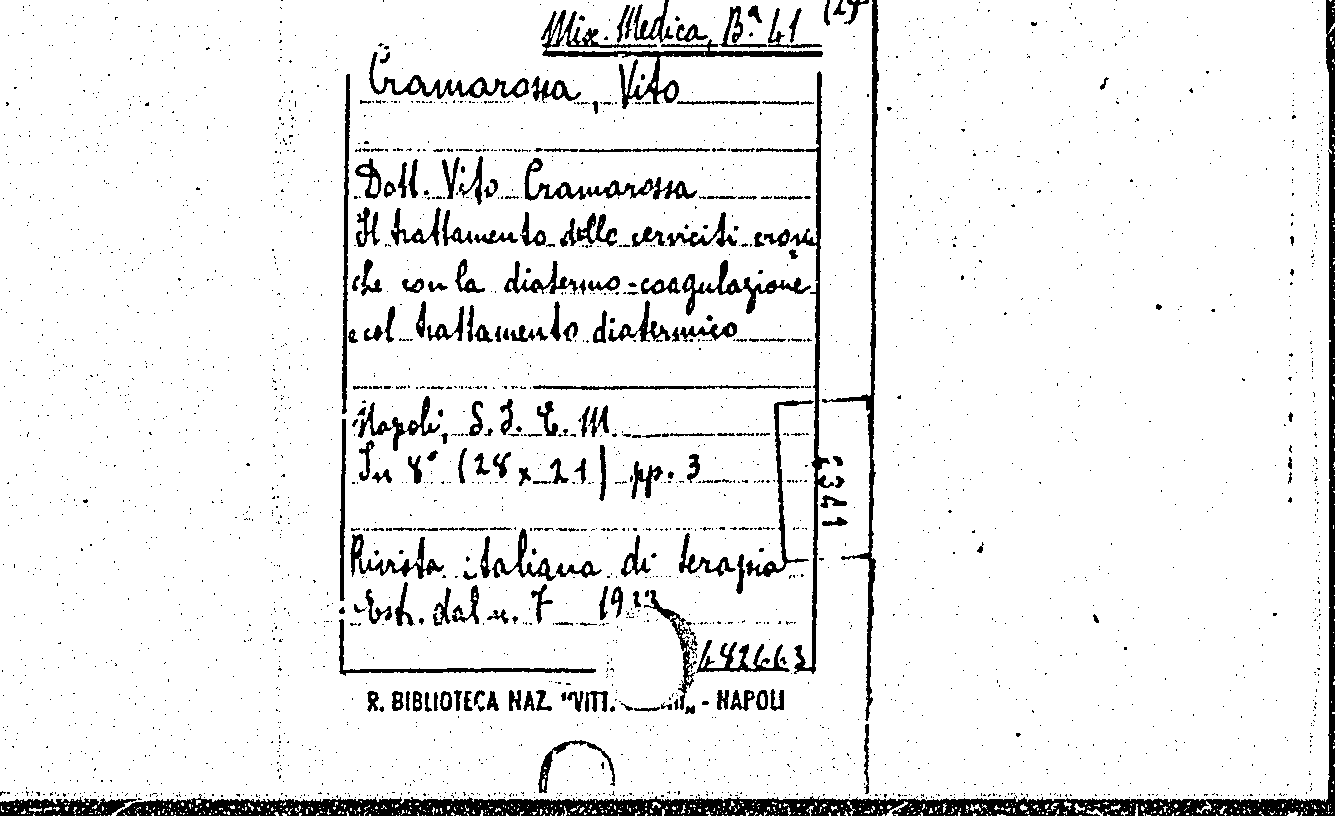 Mis. Medica, Bª 41 (29
Cramarossa, Vito
Dott. Vito Cramarossa
Il trattamento delle cerviciti croni
che con la diatermo-coagulazione
e col trattamento diatermico
Napoli, S. I. E. M.
In 8° (28 x 21) pp. 3
Rivista italiana di terapia
Estr. dal n. 7 1933
682663
R. BIBLIOTECA NAZ. "VITT. - NAPOLI